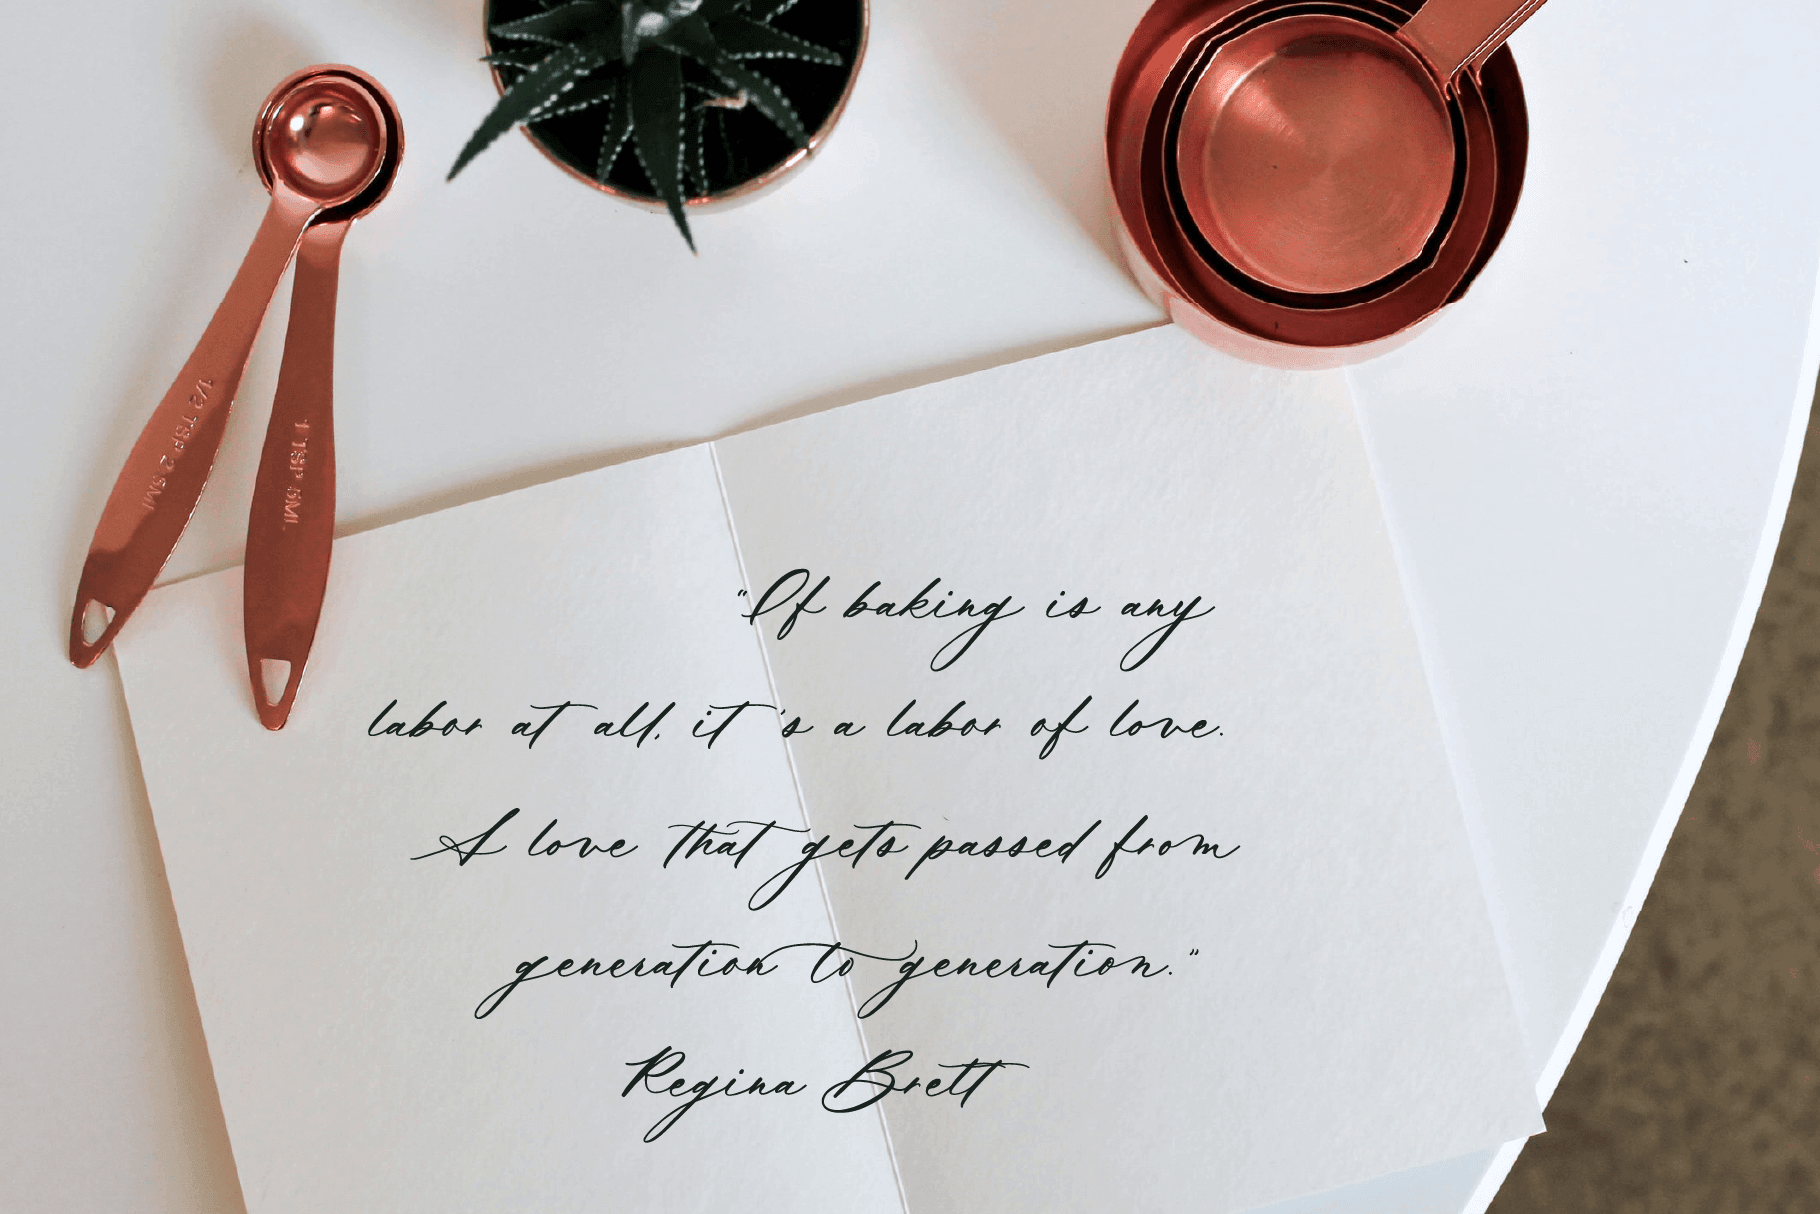 1/2 TSP 2.5ML
1 TSP 5ML
"If baking is any
labor at all, it's a labor of love.
A love that gets passed from
generation to generation."
Regina Brett